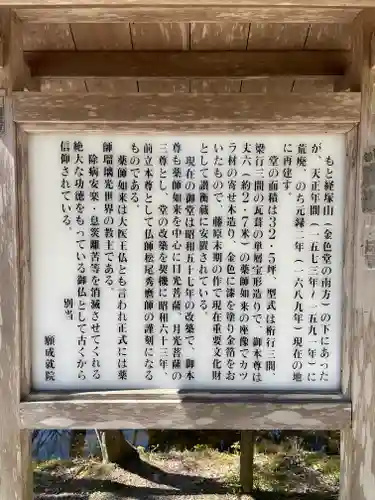 もと経塚山(金色堂の南方)の下にあった
が、天正年間(一五七三年/一五九一年)に
荒廃、のち元禄二年(一六八九年)現在の地
に再建す。
堂の面積は32・5坪、型式は桁行三間、
梁行三間の瓦葺の単層宝形造りで、御本尊は
丈六(約2・7米)の薬師如来の座像でカツ
ラ材の寄せ木造り、金色に漆を塗り金箔をお
いたもので、藤原末期の作で現在重要文化財
として讃衡蔵に安置されている。
現在の御堂は昭和五十七年の改築で、御本
尊も薬師如来を中心に日光菩薩、月光菩薩の
三尊とし、堂の改築を契機に昭和六十三年、
前立本尊として仏師松尾秀麿師の謹刻になる
ものである。
薬師如来は大医王仏とも言われ正式には薬
師瑠璃光世界の教主である。
除病安楽・息災離苦等を消滅させてくれる
絶大な功徳をもっている御仏として古くから
信仰されている。
別当
願成就院